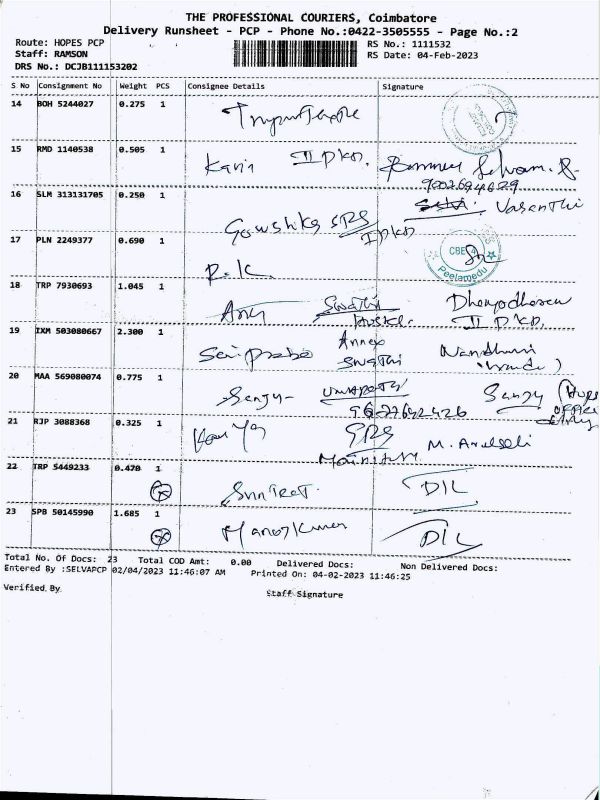 THE PROFESSIONAL COURIERS, Coimbatore
Delivery Runsheet - PCP - Phone No.:0422-3505555 - Page No.:2
Route: HOPES PCP
RS No.: 1111532
Staff: RAMSON
RS Date: 04-Feb-2023
DRS No.: DCJB111153202
S No Consignment No Weight PCS Consignee Details Signature
14 BOH 5244027 0.275 1
15 RMD 1140538 0.505 1 II PKD. Selvam.
16 SLM 313131705 0.250 1 Vasanthi
Gowshika SRS II PKD
17 PLN 2249377 0.690 1
R.K. CBE Peelamedu
18 TRP 7930693 1.045 1 Swathi
Hostel. II PKD.
19 IXM 503080667 2.300 1 Annex
Swathi Nandhini
20 MAA 569080074 0.775 1
Sanju Sanju
21 RJP 3088368 0.325 1 SRS M.
22 TRP 5449233 0.470 1
DIL
23 SPB 50145990 1.685 1
Manoj Kumar DIL
Total No. Of Docs: 23 Total COD Amt: 0.00 Delivered Docs: Non Delivered Docs:
Entered By :SELVAPCP 02/04/2023 11:46:07 AM Printed On: 04-02-2023 11:46:25
Verified By
Staff Signature